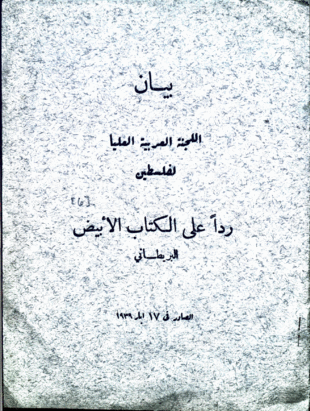 بيان
اللجنة العربية العليا
لفلسطين
رداً على الكتاب الأبيض
البريطاني
الصادر في ١٧ ايار ١٩٣٩